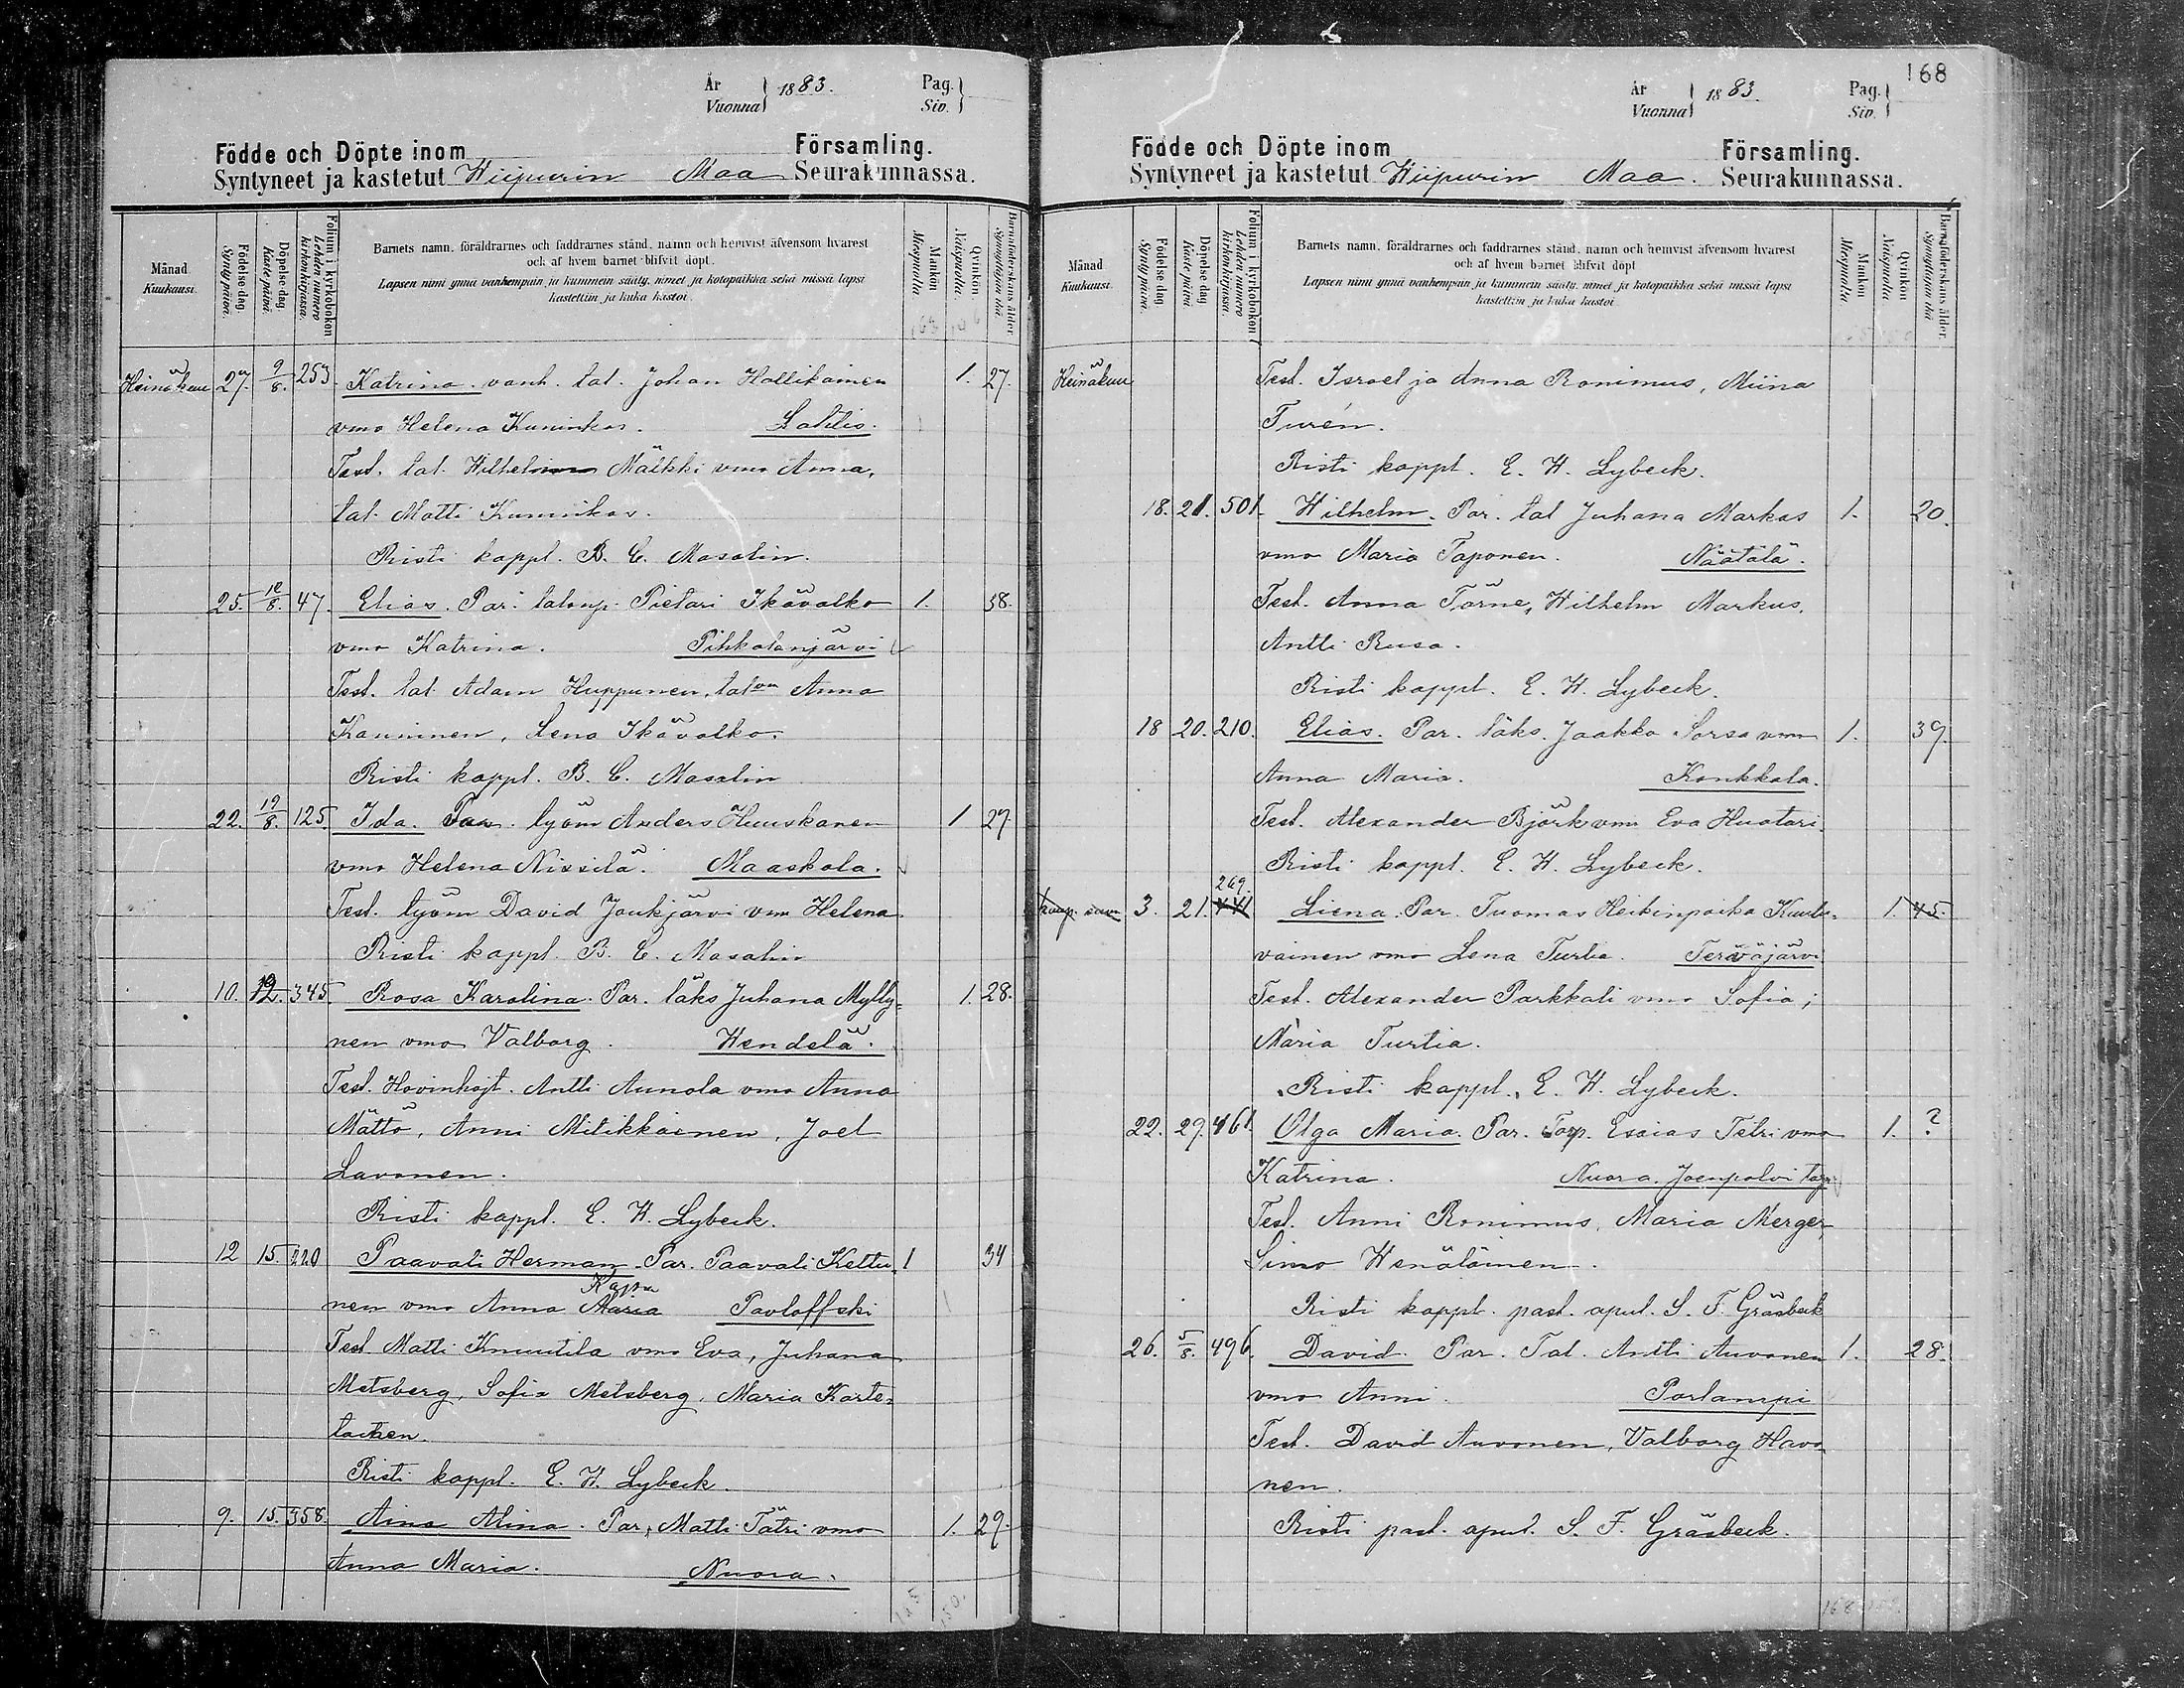 År
Vuonna } 1883. Pag.
Siv. }
Födde och Döpte inom Församling.
Syntyneet ja kastetut Wiipurin Maa Seurakunnassa.
Månad
Kuukausi.
Födelse dag.
Synty päivä.
Döpelse dag.
Kaste päivä.
Folium i kyrkoboken
Lehden numero
kirkonkirjassa.
Barnets namn, föräldrarnes och faddrarnes stånd, namn och hemvist äfvensom hvarest
och af hvem barnet blifvit döpt.
Lapsen nimi ynnä vanhempain ja kummein sääty, nimet ja kotopaikka sekä missä lapsi
kastettiin ja kuka kastoi.
Mankön
Miespuolta
Qvinkön
Naispuolta.
Barnaföderskans ålder.
Synnyttäjän ikä.
Heinäkuu 27. 9/8. 253. Katrina. vanh. tal. Johan Hallikainen 1. 27.
vmo Helena Kuninkas. Lahtis.
Test. tal. Wilhelm Mälkki vmo Anna,
tal. Matti Kuninkas.
Risti kappl. B. C. Masalin.
25. 12/8. 47. Elias. Par. talonp. Pietari Ikävalko 1. 38.
vmo Katrina. Pihkalanjärvi
Test. tal. Adam Huppunen, talon Anna
Kauninen, Lena Ikävalko.
Risti kappl. B. C. Masalin
22. 19/8. 125. Ida. Par. työm Anders Huuskanen 1 27.
vmo Helena Nissilä. Maaskola.
Test. työm David Joukjärvi vmo Helena
Risti kappl. B. C. Masalin
10. 12. 345. Rosa Karolina. Par. läks Juhana Mylly= 1. 28.
nen vmo Valborg. Wendelä.
Test. Hovinhojt. Antti Aunola vmo Anna
Mättö, Anni Mitikkainen, Joel
Lavonen.
Risti kappl. E. W. Lybeck.
12 15. 220 Paavali Herman. Par. Paavali Kettu= 1 34
Kajsa
nen vmo Anna Maria Pavloffski
Test Matti Knuutila vmo Eva, Juhana
Metsberg, Sofia Metsberg, Maria Karte=
Risti kappl. E. W. Lybeck.
9. 15. 358. Aina Alina. Par. Matti Tätri vmo 1. 29.
Anna Maria. Nuora.
168
År
Vuonna } 1883. Pag.
Siv. }
Födde och Döpte inom Församling.
Syntyneet ja kastetut Wiipurin Maa. Seurakunnassa.
Månad
Kuukausi.
Födelse dag.
Synty päivä.
Döpelse dag.
Kaste päivä.
Folium i kyrkoboken
Lehden numero
kirkonkirjassa.
Barnets namn, föräldrarnes och faddrarnes stånd, namn och hemvist äfvensom hvarest
och af hvem barnet blifvit döpt
Lapsen nimi ynnä vanhempain ja kummein sääty, nimet ja kotopaikka sekä missä lapsi
kastettiin ja kuka kastoi.
Mankön
Miespuolta
Qvinkön
Naispuolta
Barnaföderskans ålder.
Synnyttäjän ikä
Heinäkuu Test. Israel ja Anna Ronimus, Miina
Turén.
Risti kappl. E. W. Lybeck.
18. 21. 501. Wilhelm. Par. tal Juhana Markas 1. 20.
vmo Maria Taponen. Näätälä.
Test. Anna Törne, Wilhelm Markus,
Antti Rusa.
Risti kappl. E. W. Lybeck.
18 20. 210. Elias. Par. läks. Jaakko Sorsa vmo 1. 39.
Anna Maria. Konkkala.
Test. Alexander Björk vmo Eva Huotari.
Risti kappl. E. W. Lybeck.
269.
3. 21. Liena. Par. Tuomas Heikinpoika Kuulu= 1. 45.
vainen vmo Lena Turtia. Terväjärvi
Test. Alexander Parkkali vmo Sofia;
Maria Turtia.
Risti kappl. E. W. Lybeck.
22. 29. 461. Olga Maria. Par. Torp. Esaias Tätri vmo 1. ?
Katrina. Nuora. Joenpolvi torp.
Test. Anni Ronimus, Maria Merger,
Simo Wenäläinen.
Risti kappl. past. apul. S. F. Gräsbeck
26. 5/8. 496. David. Par. Tal. Antti Auvonen 1. 28.
vmo Anni. Parlampi
Test. David Auvonen, Valborg Havo
nen.
Risti past. apul. S. F. Gräsbeck.